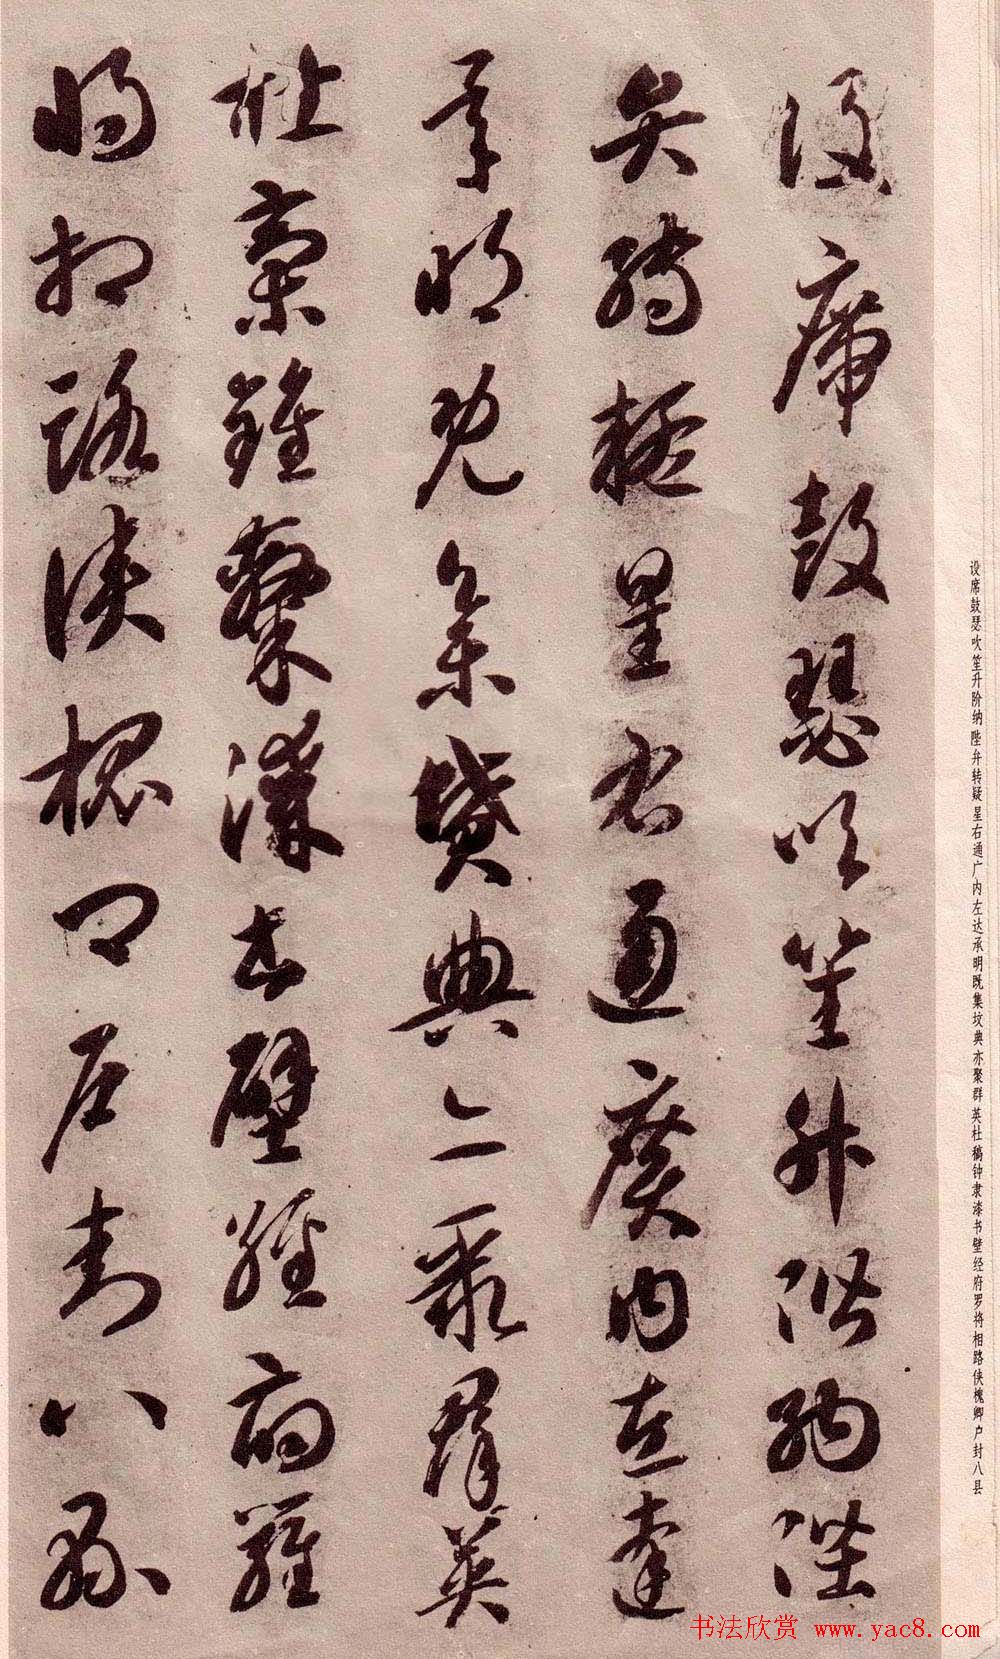 设席鼓瑟吹笙升阶纳陛弁转疑星右通广内左达承明既集坟典亦聚群英杜稿钟隶漆书壁经府罗将相路侠槐卿户封八县
設席鼓瑟吹笙升階納陛
弁轉疑星右通廣内左達
承明既集墳典亦聚群英
杜稾鍾隸漆書壁經府羅
將相路俠槐卿户封八縣
书法欣赏 www.yac8.com